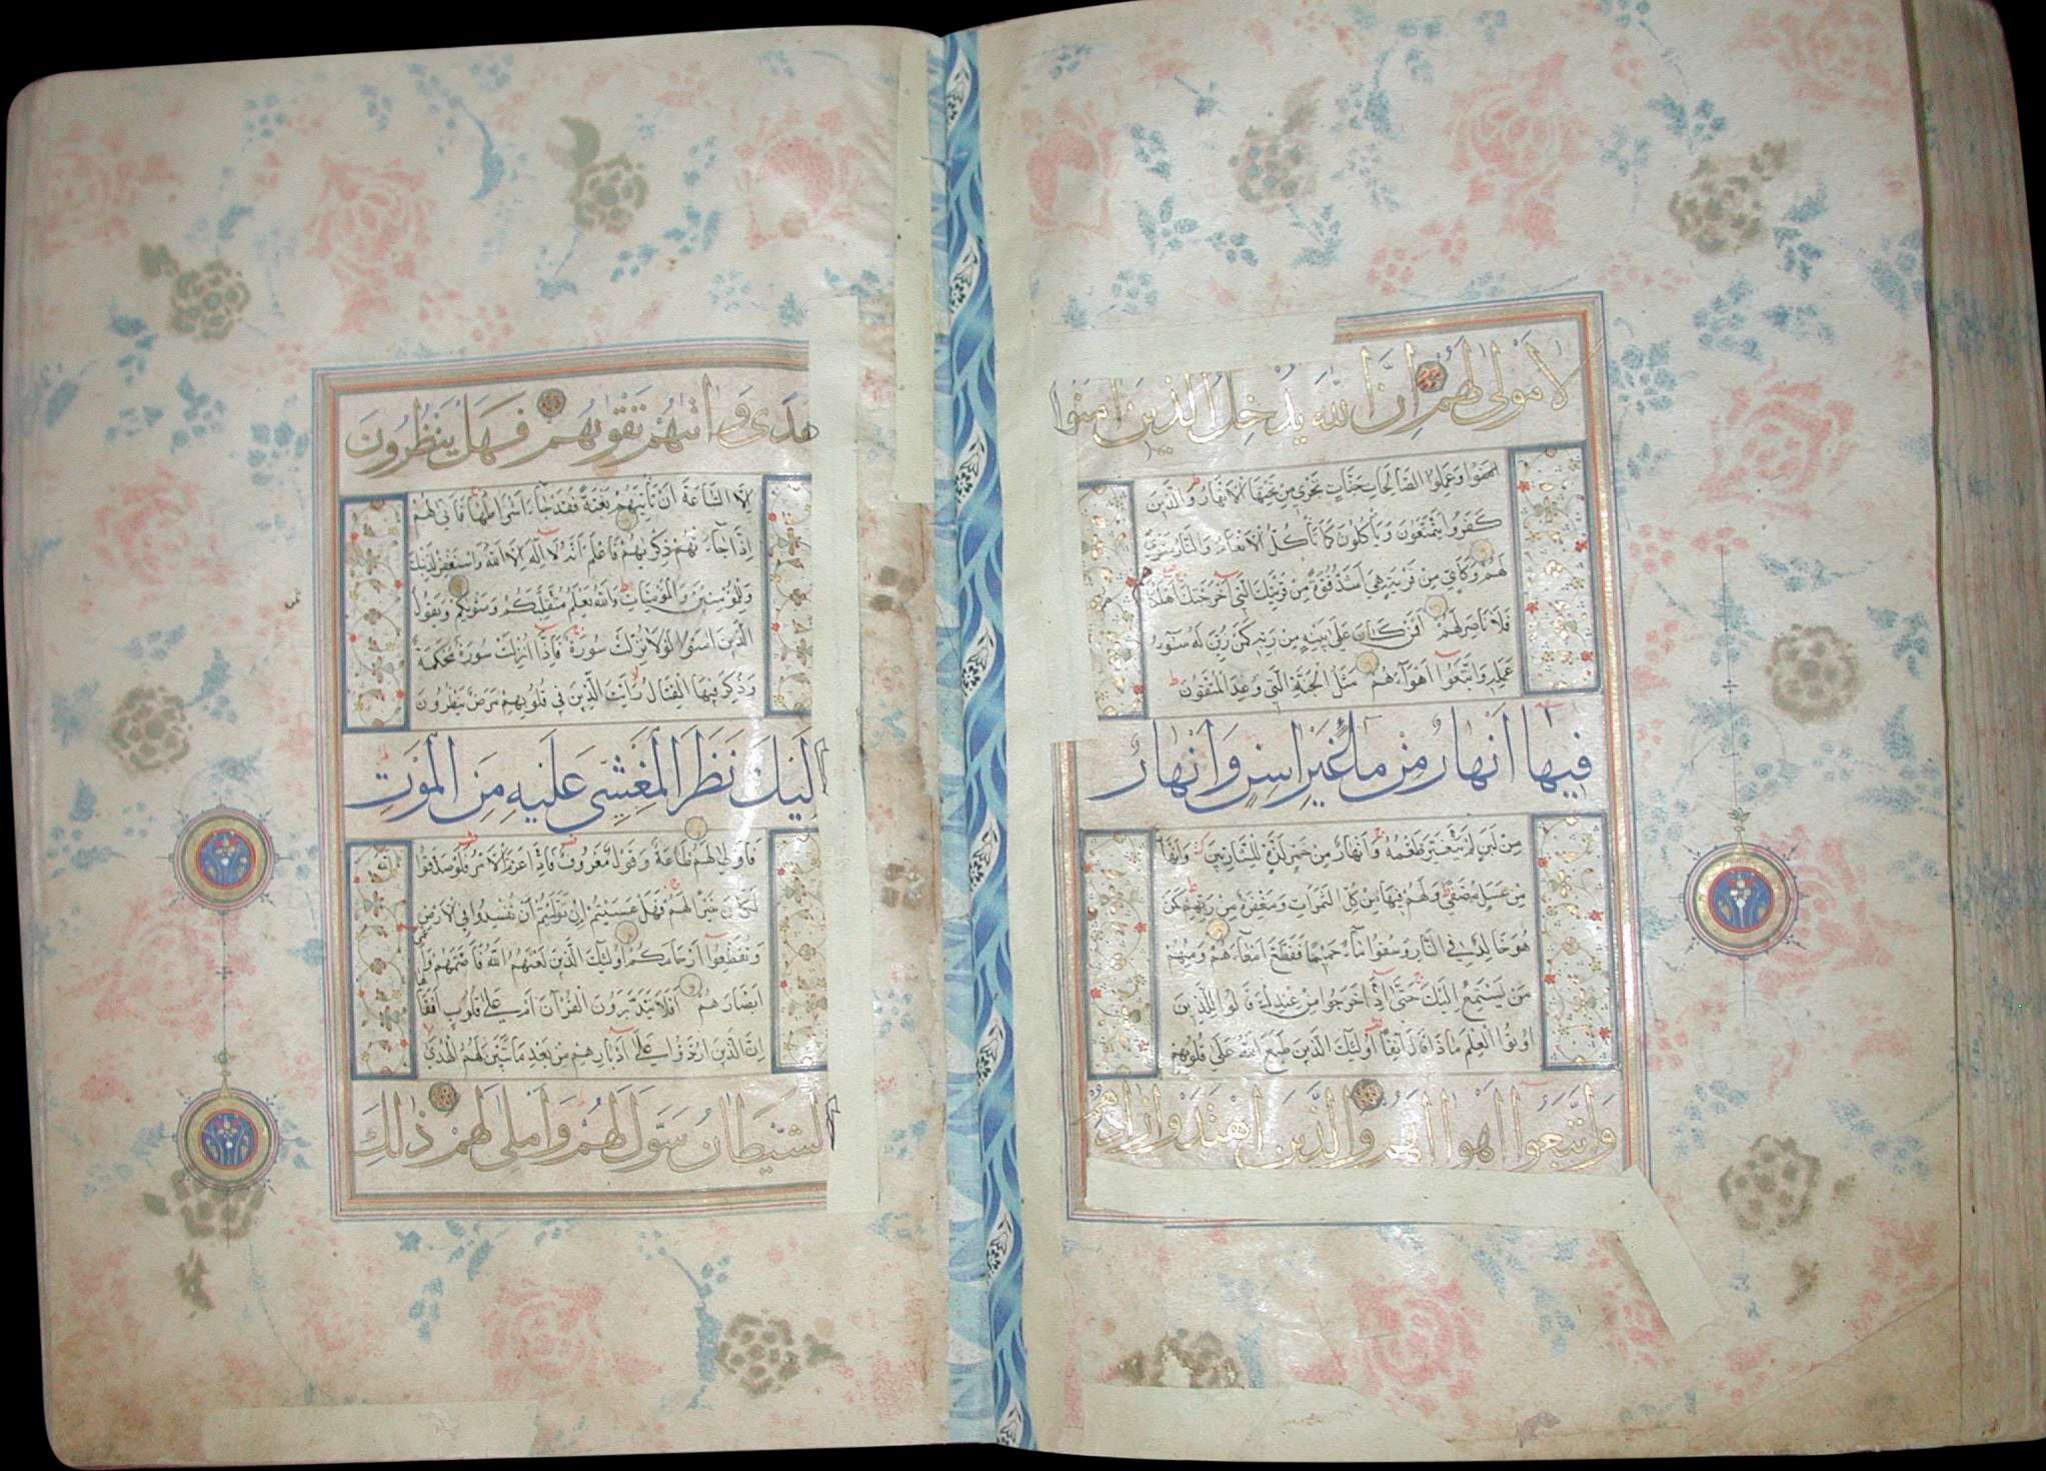 لا مولى لهم ان الله يدخل الذين امنوا
امنوا وعملوا الصالحات جنات تجري من تحتها الانهار والذين
كفروا يتمتعون ويأكلون كما تأكل الانعام والنار مثوى
لهم وكاين من قرية هي اشد قوة من قريتك التي اخرجتك اهلكناهم
فلا ناصر لهم افمن كان على بينة من ربه كمن زين له سوء
عمله واتبعوا اهواءهم مثل الجنة التي وعد المتقون
فيها انهار من ماء غير اسن وانهار
من لبن لم يتغير طعمه وانهار من خمر لذة للشاربين وانهار
من عسل مصفى ولهم فيها من كل الثمرات ومغفرة من ربهم كمن
هو خالد في النار وسقوا ماء حميما فقطع امعاءهم ومنهم
من يستمع اليك حتى اذا خرجوا من عندك قالوا للذين
اوتوا العلم ماذا قال انفا اولئك الذين طبع الله على قلوبهم
واتبعوا اهواءهم والذين اهتدوا زادهم
هدى واتيهم تقويهم فهل ينظرون
الا الساعة ان تأتيهم بغتة فقد جاء اشراطها فانى لهم
اذا جاءتهم ذكريهم فاعلم انه لا اله الا الله واستغفر لذنبك
وللمؤمنين والمؤمنات والله يعلم متقلبكم ومثويكم ويقول
الذين امنوا لولا نزلت سورة فاذا انزلت سورة محكمة
وذكر فيها القتال رأيت الذين في قلوبهم مرض ينظرون
اليك نظر المغشي عليه من الموت
فاولى لهم طاعة وقول معروف فاذا عزم الامر فلو صدقوا
لكان خيرا لهم فهل عسيتم ان توليتم ان تفسدوا في الارض
وتقطعوا ارحامكم اولئك الذين لعنهم الله فاصمهم واعمى
ابصارهم افلا يتدبرون القرآن ام على قلوب اقفالها
ان الذين ارتدوا على ادبارهم من بعد ما تبين لهم الهدى
الشيطان سول لهم واملى لهم ذلك